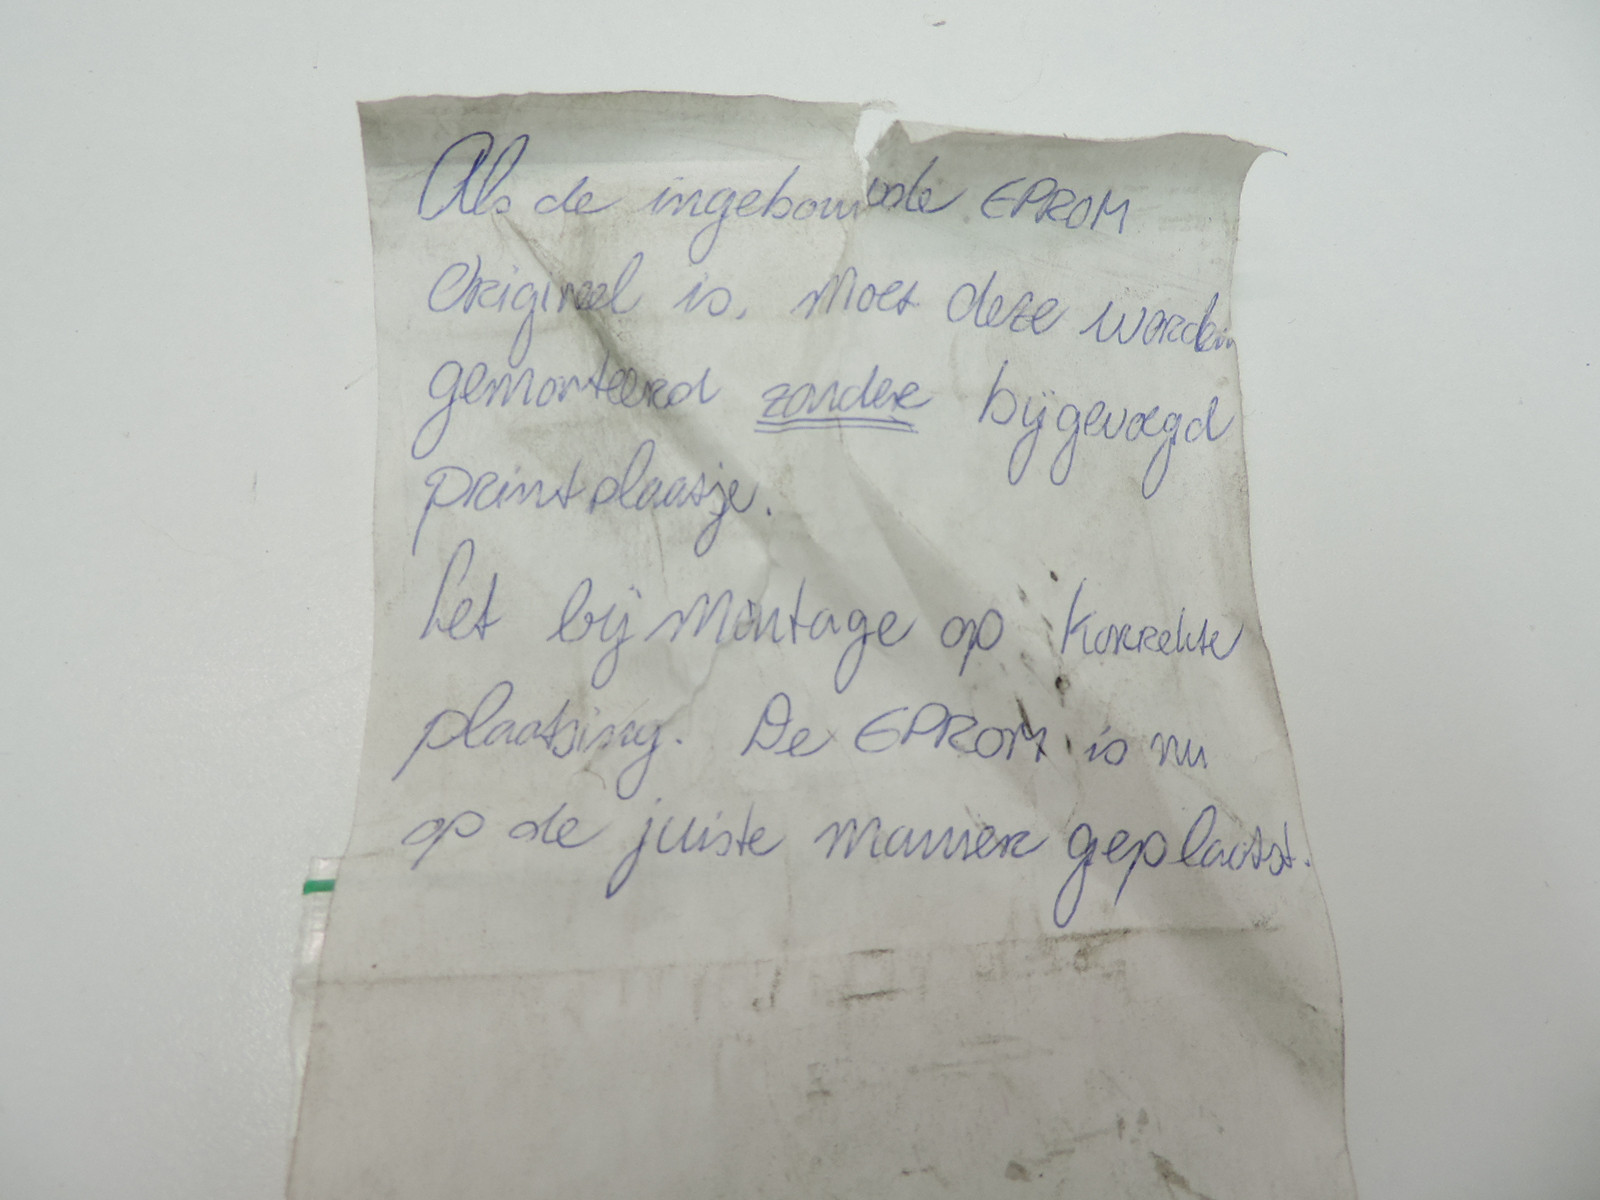 Als de ingebouwde EPROM
Origineel is, moet deze worden
gemonteerd zonder bijgevoegd
printplaatje.
Let bij montage op korrekte
plaatsing. De EPROM is nu
op de juiste manier geplaatst.